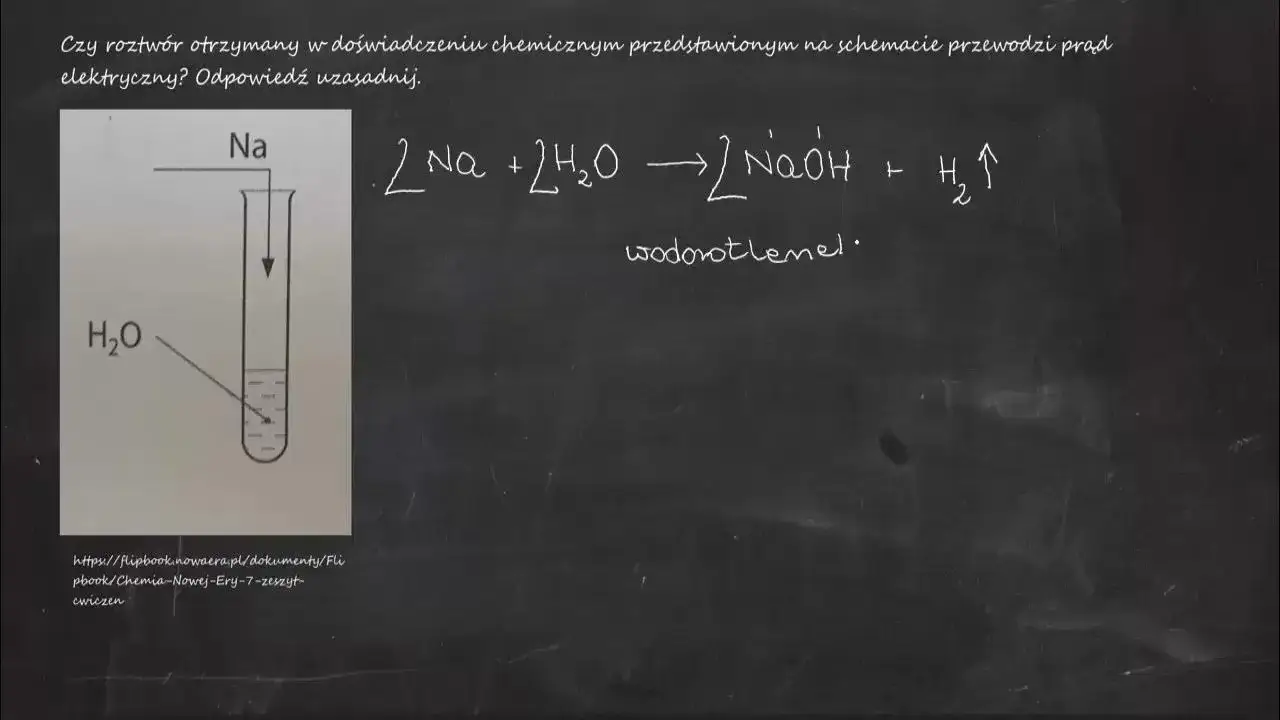 Czy roztwór otrzymany w doświadczeniu chemicznym przedstawionym na schemacie przewodzi prąd
elektryczny? Odpowiedź uzasadnij.
Na
H₂O
2Na + 2H₂O → 2NaOH + H₂↑
I I
wodorotlenek
https://flipbook.nowaera.pl/dokumenty/Fli
pbook/Chemia-Nowej-Ery-7-zeszyt-
cwiczen